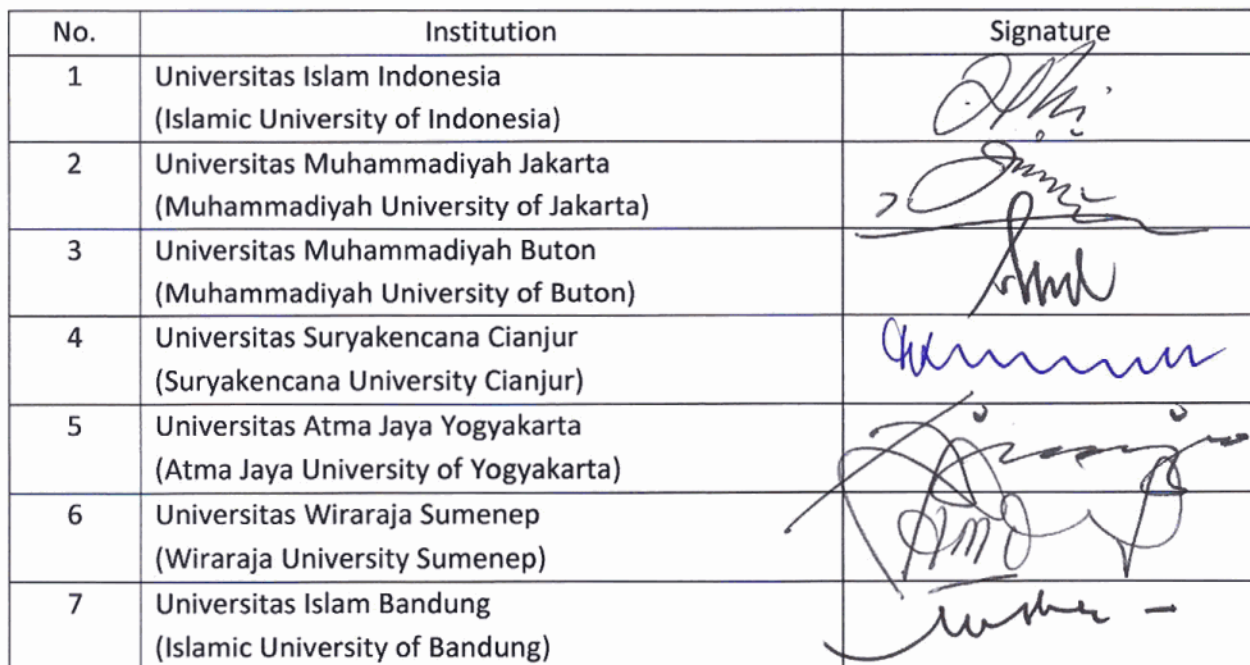 No. Institution Signature
1 Universitas Islam Indonesia
(Islamic University of Indonesia)
2 Universitas Muhammadiyah Jakarta
(Muhammadiyah University of Jakarta)
3 Universitas Muhammadiyah Buton
(Muhammadiyah University of Buton)
4 Universitas Suryakencana Cianjur
(Suryakencana University Cianjur)
5 Universitas Atma Jaya Yogyakarta
(Atma Jaya University of Yogyakarta)
6 Universitas Wiraraja Sumenep
(Wiraraja University Sumenep)
7 Universitas Islam Bandung
(Islamic University of Bandung)